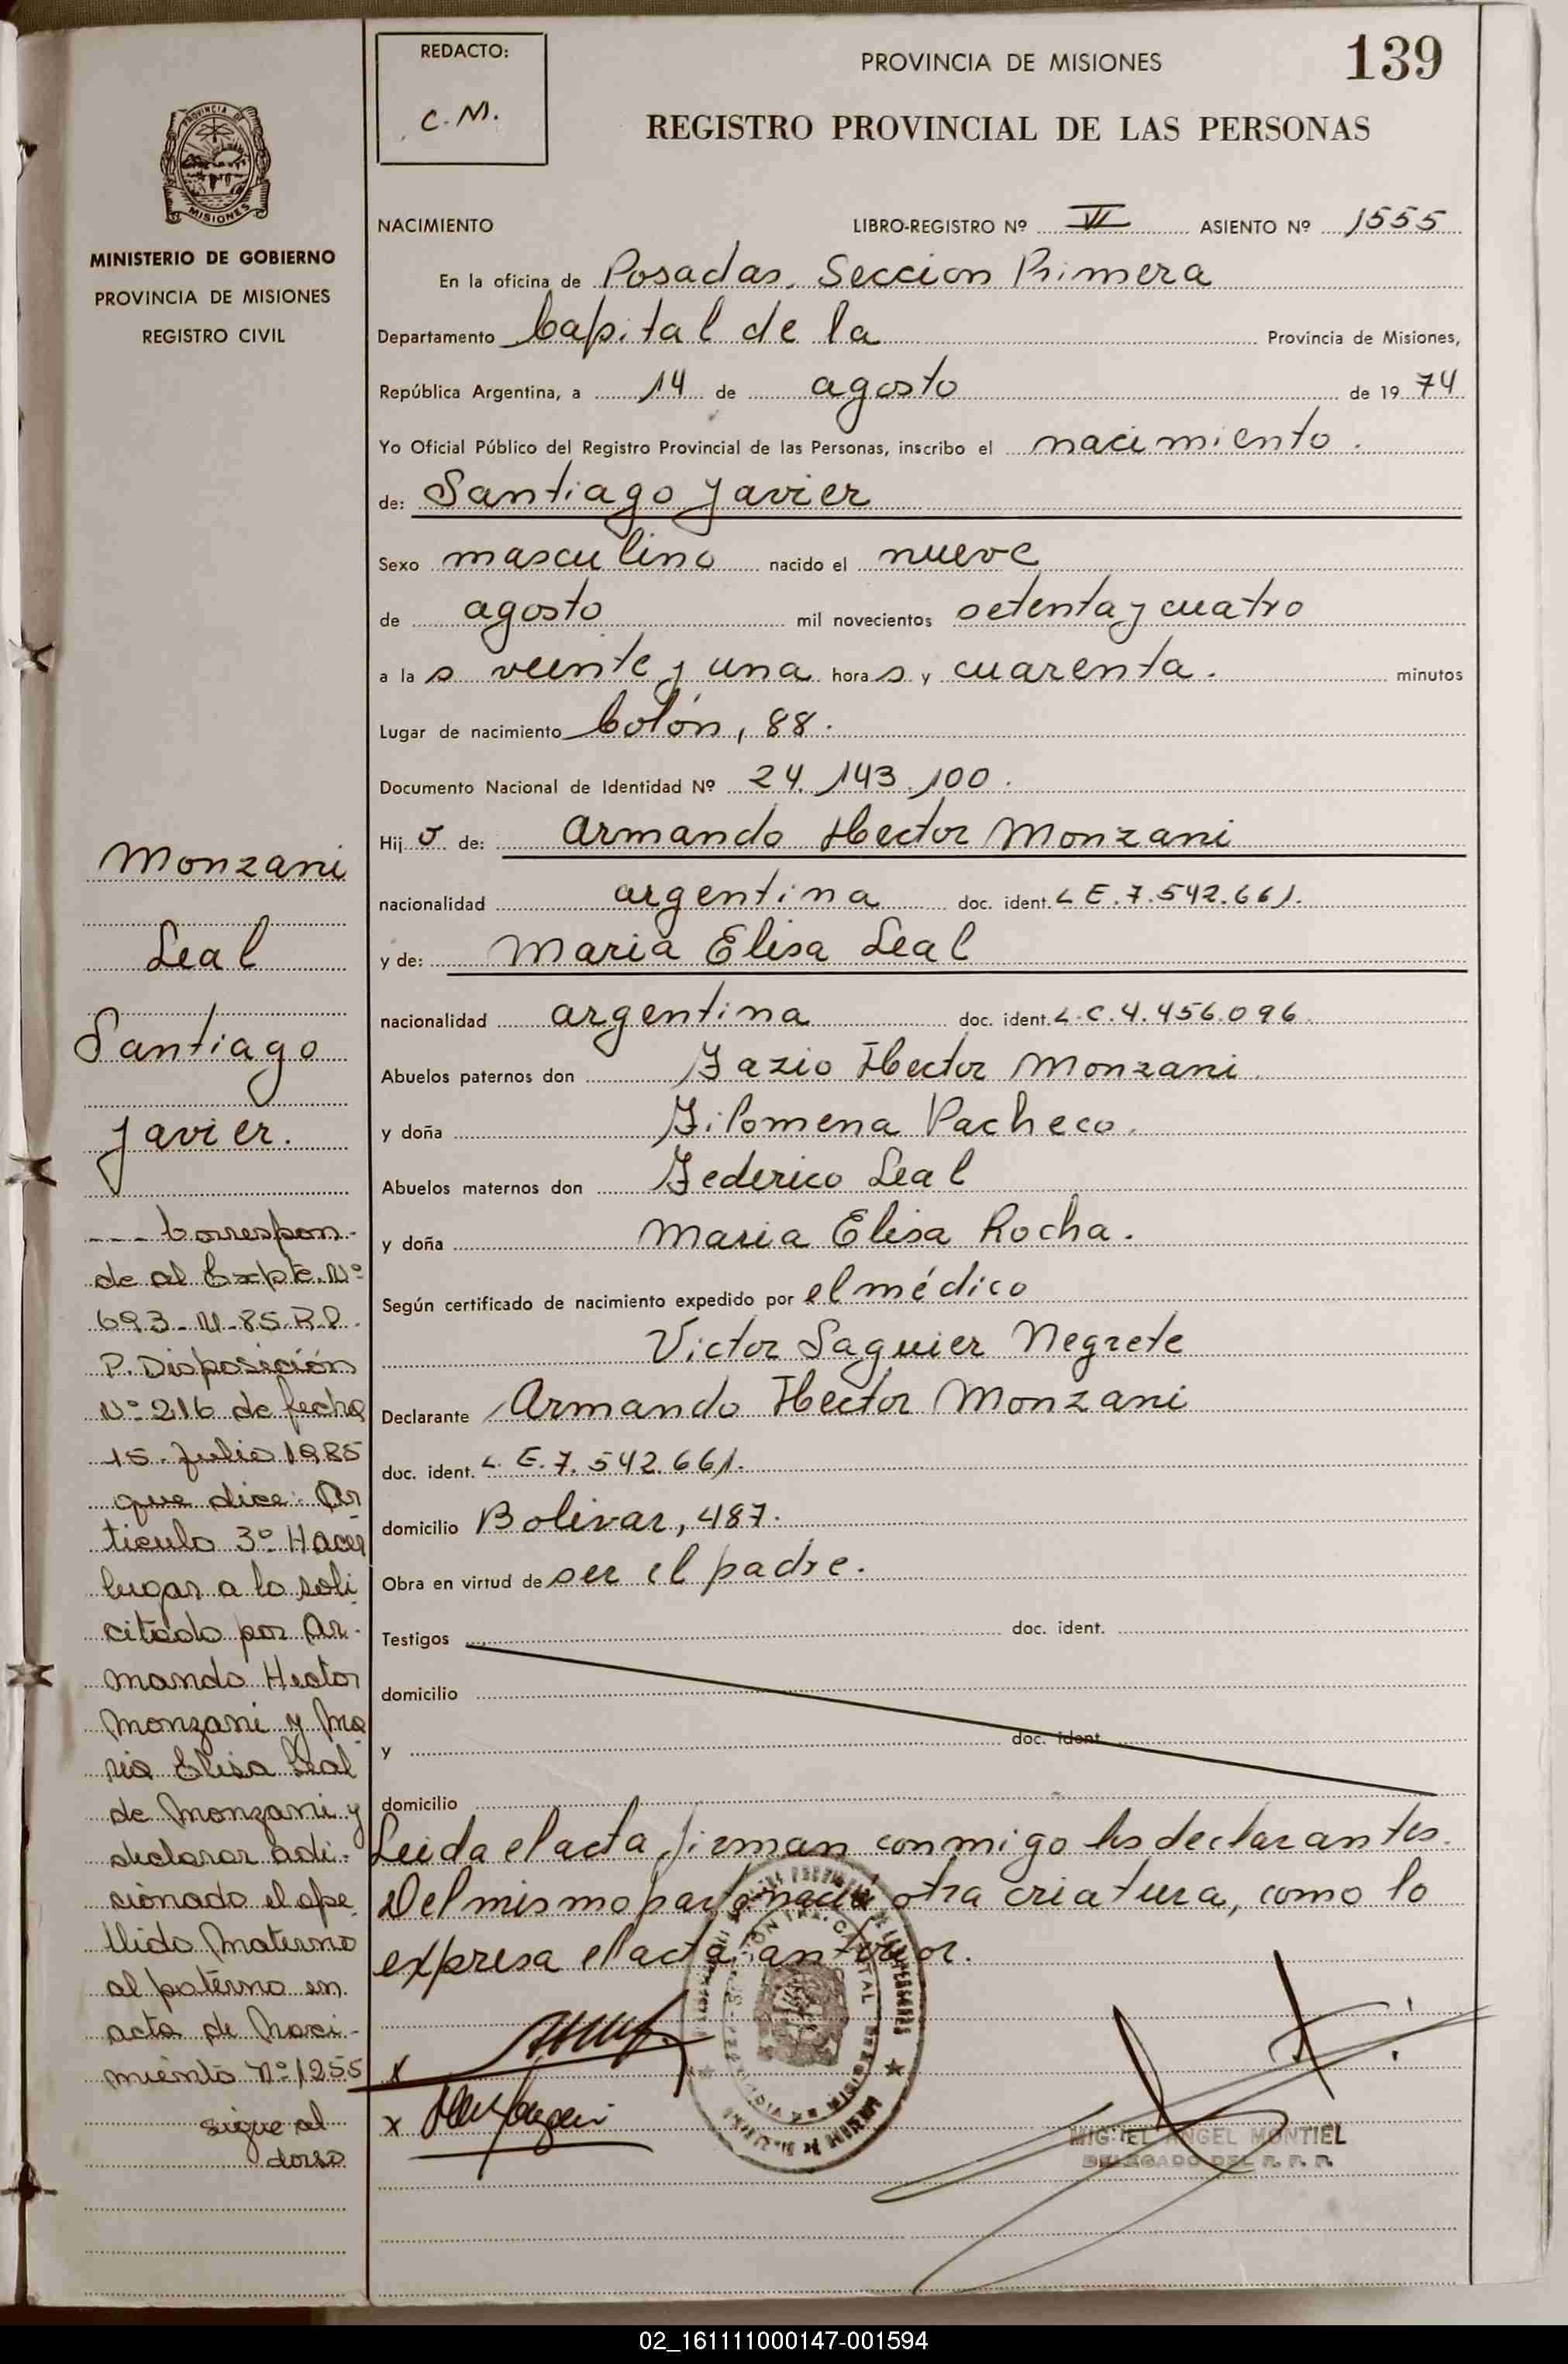 REDACTO:
C. M.
PROVINCIA DE MISIONES
139
REGISTRO PROVINCIAL DE LAS PERSONAS
PROVINCIA DE
MISIONES
MINISTERIO DE GOBIERNO
PROVINCIA DE MISIONES
REGISTRO CIVIL
NACIMIENTO LIBRO-REGISTRO Nº VI ASIENTO Nº 1555
En la oficina de Posadas. Seccion Primera
Departamento Capital de la Provincia de Misiones,
República Argentina, a 14 de agosto de 19 74
Yo Oficial Público del Registro Provincial de las Personas, inscribo el nacimiento.
de: Santiago Javier
Sexo masculino nacido el nueve
de agosto mil novecientos setenta y cuatro
a la s veinte y una hora s y cuarenta. minutos
Lugar de nacimiento Colón, 88.
Documento Nacional de Identidad Nº 24.143.100.
Hij o de: Armando Hector Monzani
nacionalidad argentina doc. ident. L E. 7.542.661.
y de: Maria Elisa Leal
nacionalidad argentina doc. ident. L.C. 4.456.096.
Abuelos paternos don Fazio Hector Monzani.
y doña Filomena Pacheco.
Abuelos maternos don Federico Leal
y doña Maria Elisa Rocha.
Según certificado de nacimiento expedido por el médico
Victor Saguier Negrete
Declarante Armando Hector Monzani
doc. ident. L. E. 7. 542.661.
domicilio Bolivar, 487.
Obra en virtud de ser el padre.
Testigos doc. ident.
domicilio
y doc. ident.
domicilio
Leida el acta firman conmigo los declarantes.
Del mismo parto nació otra criatura, como lo
expresa el acta anterior.
MIGUEL ANGEL MONTIEL
DELEGADO DEL R. P. P.
Monzani
Leal
Santiago
Javier.
--- Correspon-
de al Expte. Nº
693-M-85 R.P.
P. Disposición
Nº 216 de fecha
15. Julio 1985
que dice: Ar
ticulo 3º Hacer
lugar a lo soli
citado por Ar-
mando Hector
Monzani y Ma
ria Elisa Leal
de Monzani y
declarar adi-
cionado el ape
llido Materno
al paterno en
acta de Naci-
miento Nº 1255
sigue al
dorso
02_161111000147-001594